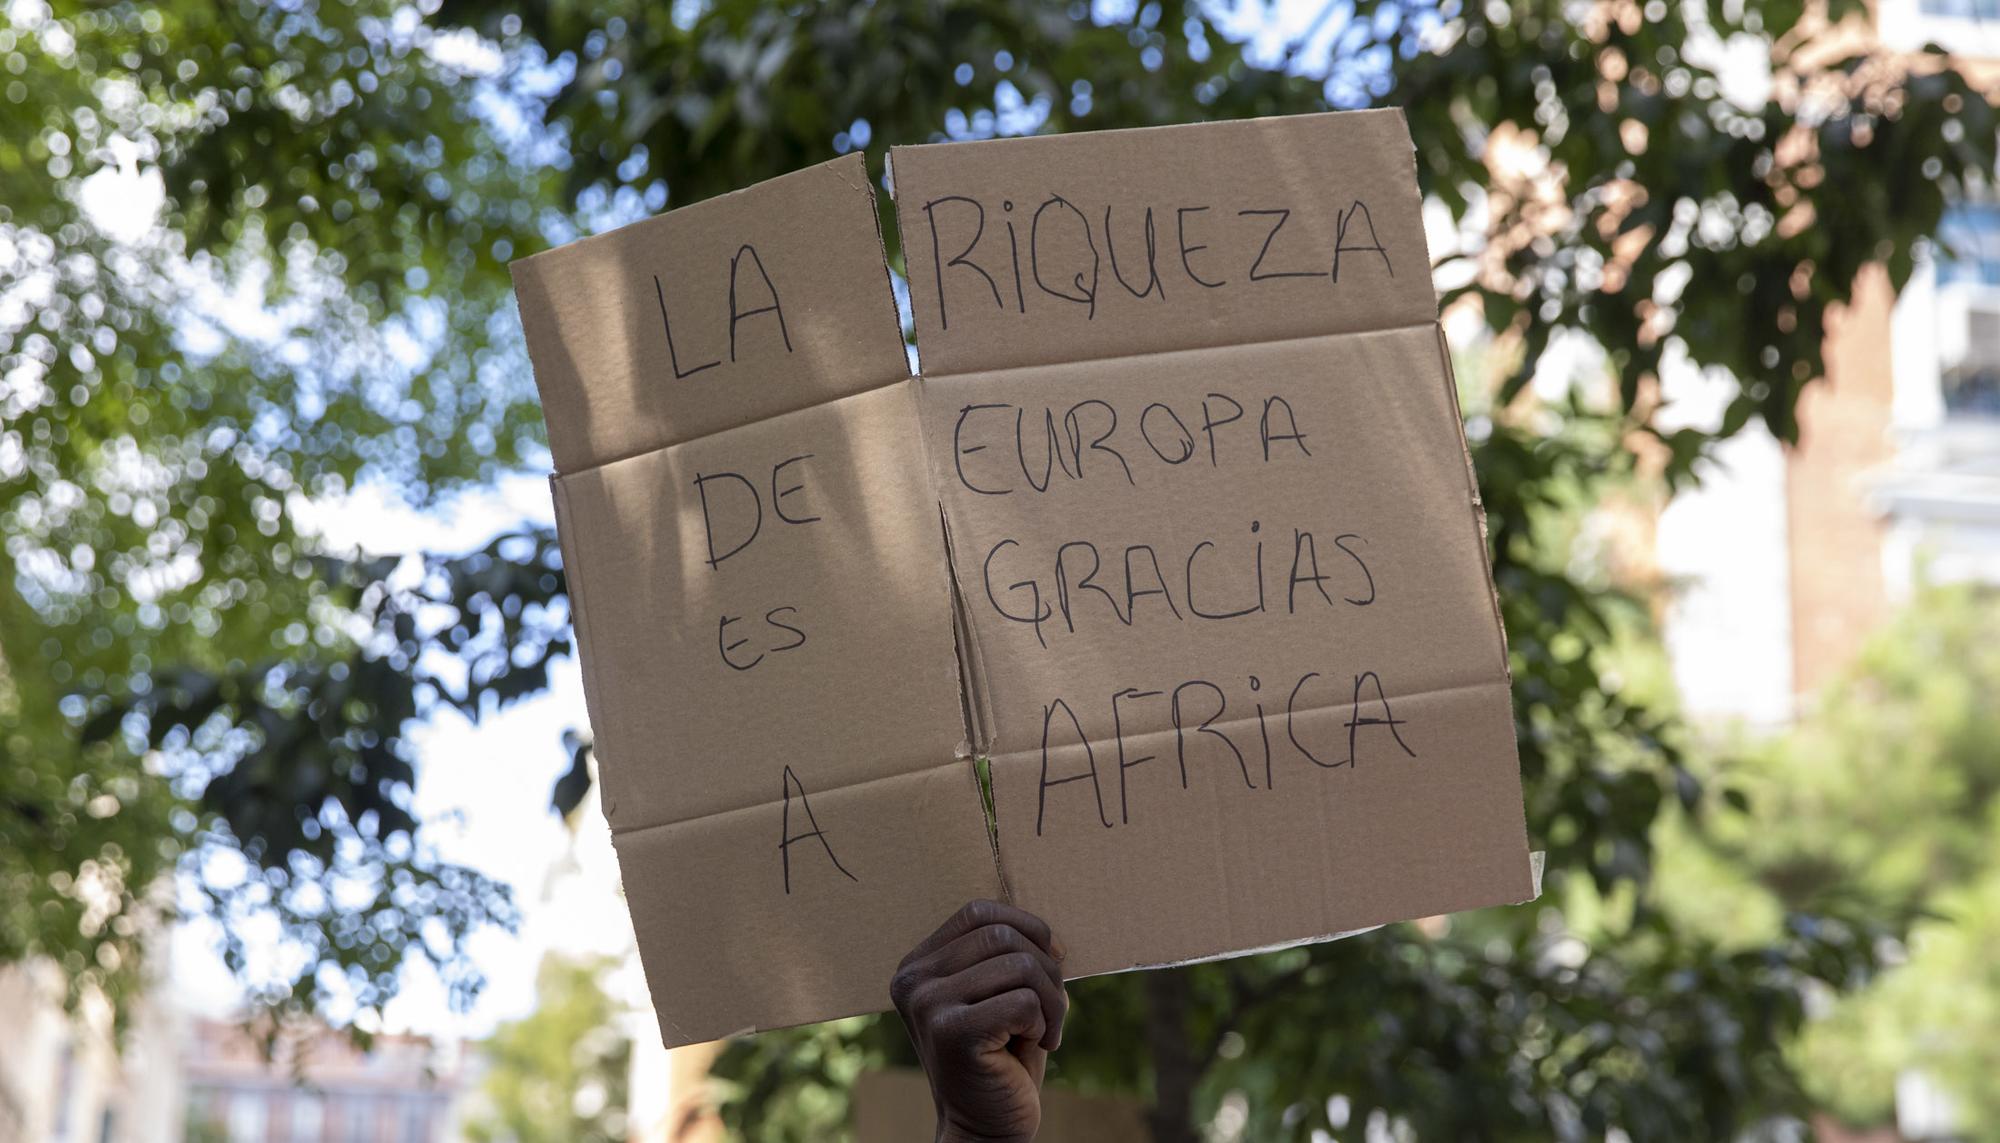 LA RiQUEZA
DE EUROPA
ES GRACiAS
A AFRiCA